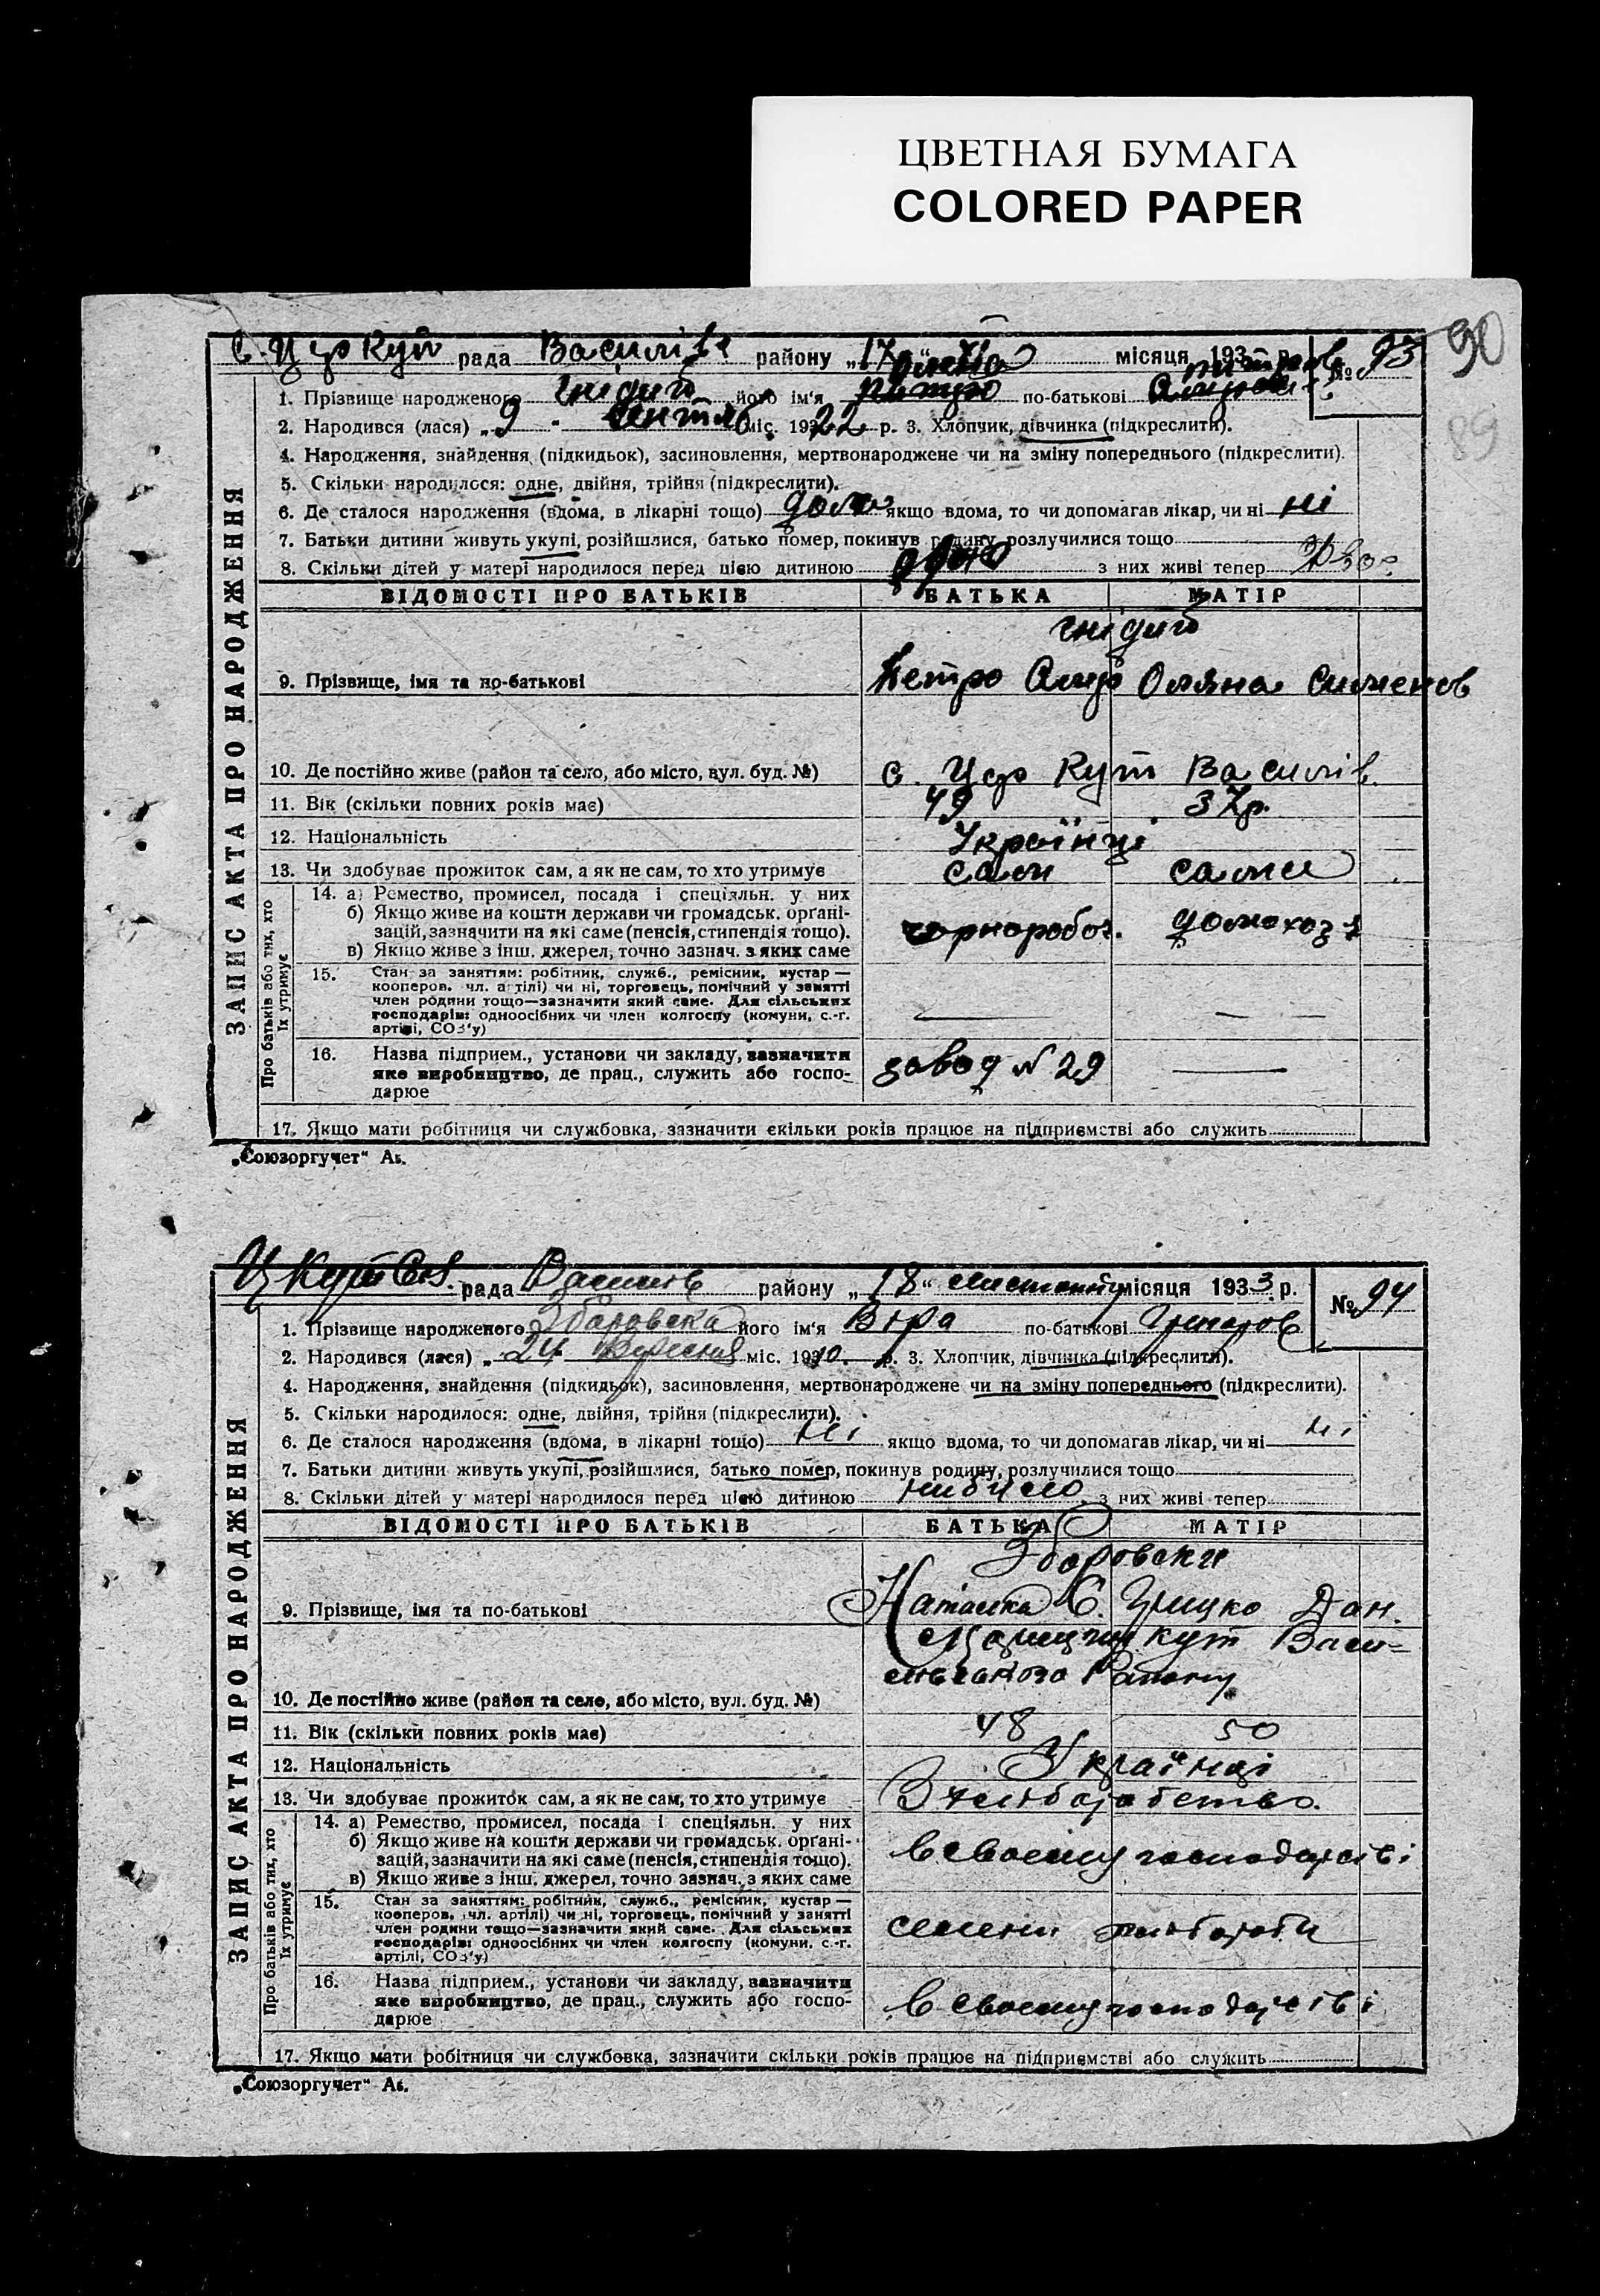 ЦВЕТНАЯ БУМАГА
COLORED PAPER
90
89
С. Цар Кут рада Василів району „17“ місяця 193 р. № 93
ЗАПИС АКТА ПРО НАРОДЖЕННЯ
1. Прізвище народженого Гнідий його ім'я по-батькові
2. Народився (лася) „9 міс. 1922 р. 3. Хлопчик, дівчинка (підкреслити).
4. Народження, знайдення (підкидьок), засиновлення, мертвонароджене чи на зміну попереднього (підкреслити).
5. Скільки народилося: одне, двійня, трійня (підкреслити).
6. Де сталося народження (вдома, в лікарні тощо) дома якщо вдома, то чи допомагав лікар, чи ні ні
7. Батьки дитини живуть укупі, розійшлися, батько помер, покинув родину, розлучилися тощо
8. Скільки дітей у матері народилося перед цією дитиною з них живі тепер
ВІДОМОСТІ ПРО БАТЬКІВ БАТЬКА МАТІР
Гнідий
9. Прізвище, імя та по-батькові Петро Оляна Сименов
10. Де постійно живе (район та село, або місто, вул. буд. №) С. Цар Кут Василів.
11. Вік (скільки повних років має) 49 37р.
12. Національність Українці
13. Чи здобуває прожиток сам, а як не сам, то хто утримує сам сама
Про батьків або тих, хто їх утримує
14. а) Ремество, промисел, посада і спеціяльн. у них
б) Якщо живе на кошти держави чи громадськ. орґані-
зацій, зазначити на які саме (пенсія, стипендія тощо).
в) Якщо живе з інш. джерел, точно зазнач. з яких саме
чорнороб. домохоз
15. Стан за заняттям: робітник, служб., ремісник, кустар —
кооперов. чл. артілі) чи ні, торговець, помічний у занятті
член родини тощо—зазначити який саме. Для сільських
господарів: одноосібних чи член колгоспу (комуни, с.-г.
артілі, СОЗ'у)
16. Назва підприєм., установи чи закладу, зазначити
яке виробництво, де прац., служить або госпо-
дарює
завод № 29
17. Якщо мати робітниця чи службовка, зазначити скільки років працює на підприємстві або служить
„Союзоргучет“ А5.
Ц Кут рада району „18“ місяця 1933 р. № 94
ЗАПИС АКТА ПРО НАРОДЖЕННЯ
1. Прізвище народженого Збаровска його ім'я Віра по-батькові
2. Народився (лася) „24 Вересня міс. 1910. р. 3. Хлопчик, дівчинка (підкреслити).
4. Народження, знайдення (підкидьок), засиновлення, мертвонароджене чи на зміну попереднього (підкреслити).
5. Скільки народилося: одне, двійня, трійня (підкреслити).
6. Де сталося народження (вдома, в лікарні тощо) Ні якщо вдома, то чи допомагав лікар, чи ні ні
7. Батьки дитини живуть укупі, розійшлися, батько помер, покинув родину, розлучилися тощо
8. Скільки дітей у матері народилося перед цією дитиною з них живі тепер
ВІДОМОСТІ ПРО БАТЬКІВ БАТЬКА МАТІР
Збаровски
9. Прізвище, імя та по-батькові Наталка С. Грицко Дан.
кут Васи-
10. Де постійно живе (район та село, або місто, вул. буд. №)
11. Вік (скільки повних років має) 48 50
12. Національність Українці
13. Чи здобуває прожиток сам, а як не сам, то хто утримує
Про батьків або тих, хто їх утримує
14. а) Ремество, промисел, посада і спеціяльн. у них
б) Якщо живе на кошти держави чи громадськ. орґані-
зацій, зазначити на які саме (пенсія, стипендія тощо).
в) Якщо живе з інш. джерел, точно зазнач. з яких саме
в своєму господарстві
15. Стан за заняттям: робітник, служб., ремісник, кустар —
кооперов. чл. артілі) чи ні, торговець, помічний у занятті
член родини тощо—зазначити який саме. Для сільських
господарів: одноосібних чи член колгоспу (комуни, с.-г.
артілі, СОЗ'у)
16. Назва підприєм., установи чи закладу, зазначити
яке виробництво, де прац., служить або госпо-
дарює
в своєму господарстві
17. Якщо мати робітниця чи службовка, зазначити скільки років працює на підприємстві або служить
„Союзоргучет“ А5.